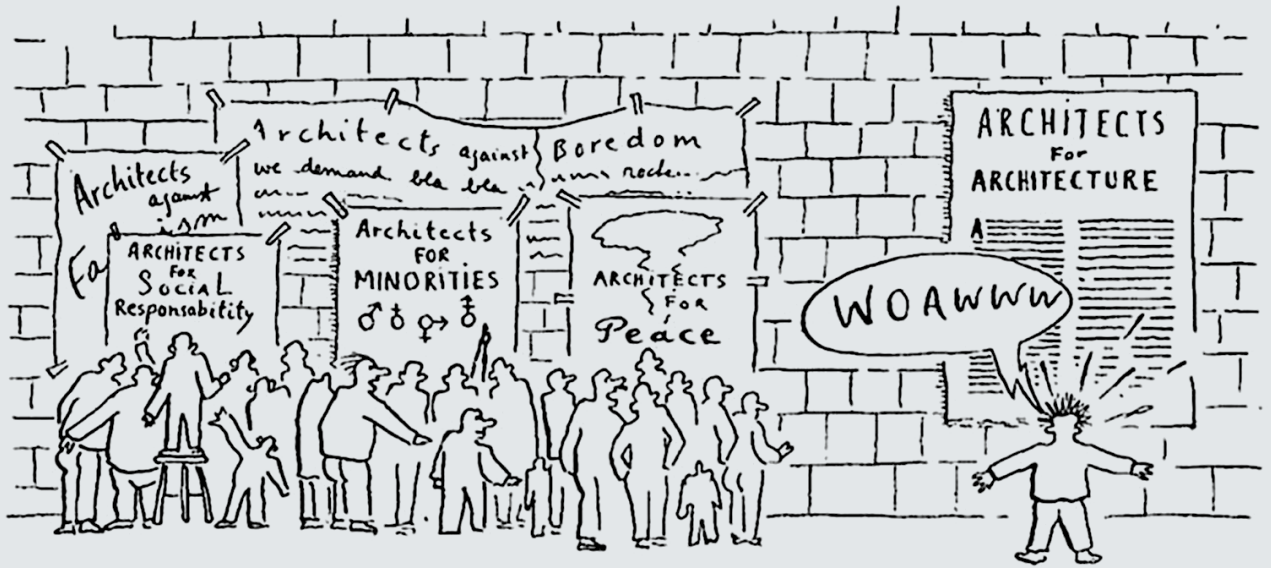 Architects
against
ism
Fa
Architects against Boredom
we demand bla bla
ARCHITECTS
FOR
SOCIAL
Responsability
Architects
FOR
MINORITIES
ARCHITECTS
FOR
Peace
ARCHITECTS
For
ARCHITECTURE
A
WOAWWW